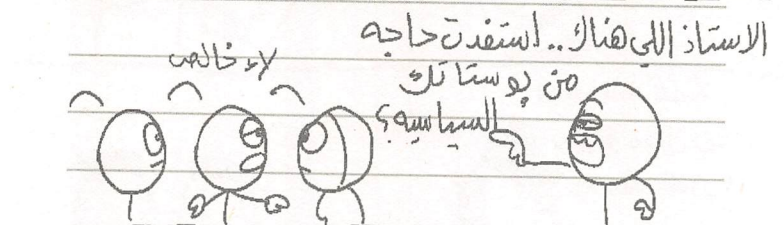 الاستاذ اللي هناك .. استفدت حاجه
من بوستاتك
السياسيه؟
لاء خالص